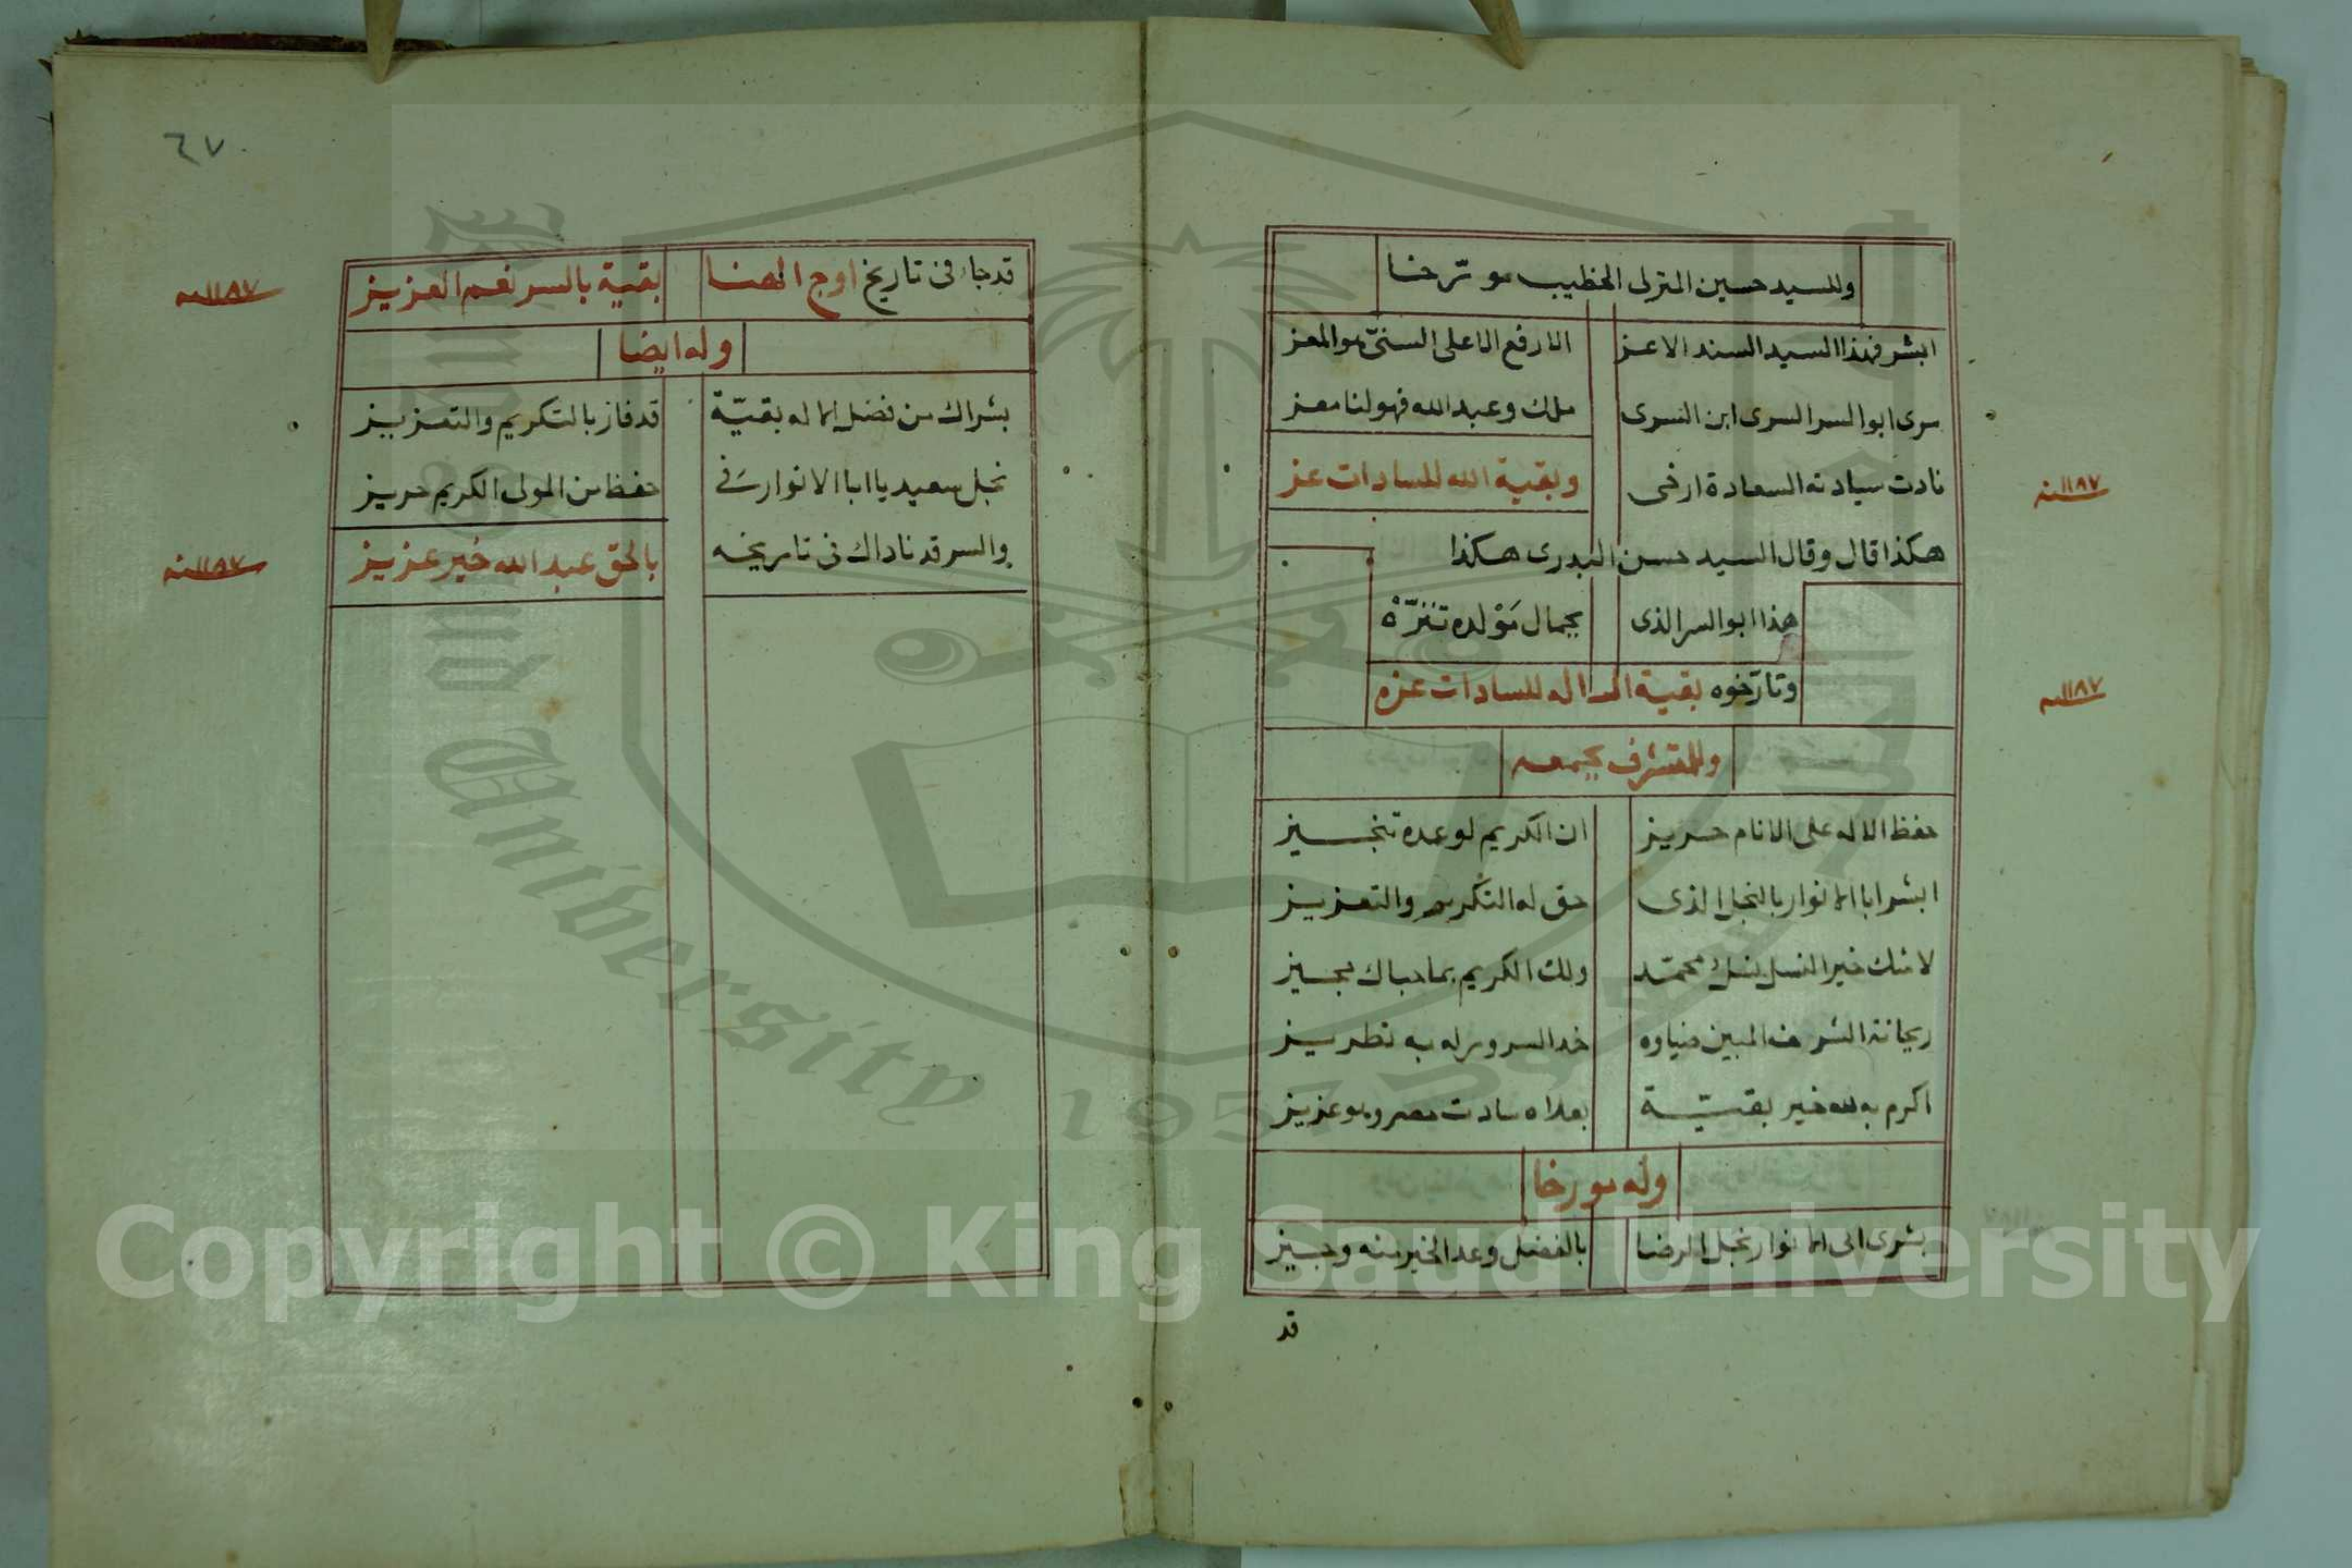 وللسيد حسين المنزلى الخطيب مؤرخا
ابشر فهذا السيد السند الاعز الارفع الاعلى السنىّ هو المعز
سرى ابو السر السرى ابن السرى ملك وعبد الله فهو لنا معز
نادت سيادته السعادة ارخى وبقية الله للسادات عز
١١٨٧ سنه
هكذا قال وقال السيد حسن البدرى هكذا
هذا ابو السر الذى بجمال مَوْلده تنزّهْ
وتارّخوه بقية الله للسادات عزه
١١٨٧ سنه
وللمتشرف بجمعه
حفظ الاله على الانام حريز ان الكريم لوعده تنجيز
ابشر ابا الانوار بالنجل الذى حق له التكريم والتعزيز
لا شك خير النسل نسل محمّد ولك الكريم بما حباك يجيز
ريحانة الشرف المبين ضياوه خد السرور له به تطريز
اكرم به لله خير بقيّة بعلاه سادت مصر وهو عزيز
وله مورخا
بشرى ابى الانوار نجل الرضا بالفضل وعد الخير منه وجيز
قد
٦٧
قد جاء فى تاريخ اوج الهنا بقية بالسر نعم العزيز
١١٨٧ سنه
وله ايضا
بشراك من فضل الاله بقيّة قد فاز بالتكريم والتعزيز
نجل سعيد يا ابا الانوار فى حفظ من المولى الكريم حريز
والسر قد ناداك فى تاريخه بالحق عبد الله خير عزيز
١١٨٧ سنه
Copyright © King Saud University
King Saud University
1957